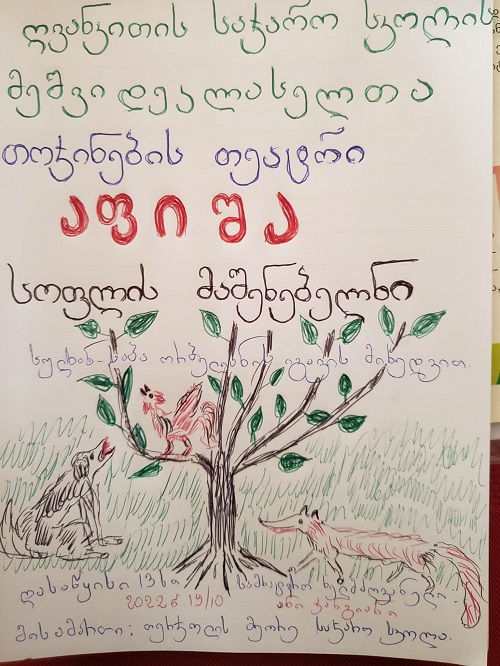 ღვანკითის საჯარო სკოლის
მეშვიდეკლასელთა
თოჯინების თეატრი
აფიშა
სოფლის მაშენებელნი
სულხან-საბა ორბელიანის იგავის მიხედვით.
დასაწყისი 13 სთ სამხატვრო ხელმძღვანელი.
2022 წ. 19/10 ანი
მისამართი: თერჯოლის მეორე საჯარო სკოლა.